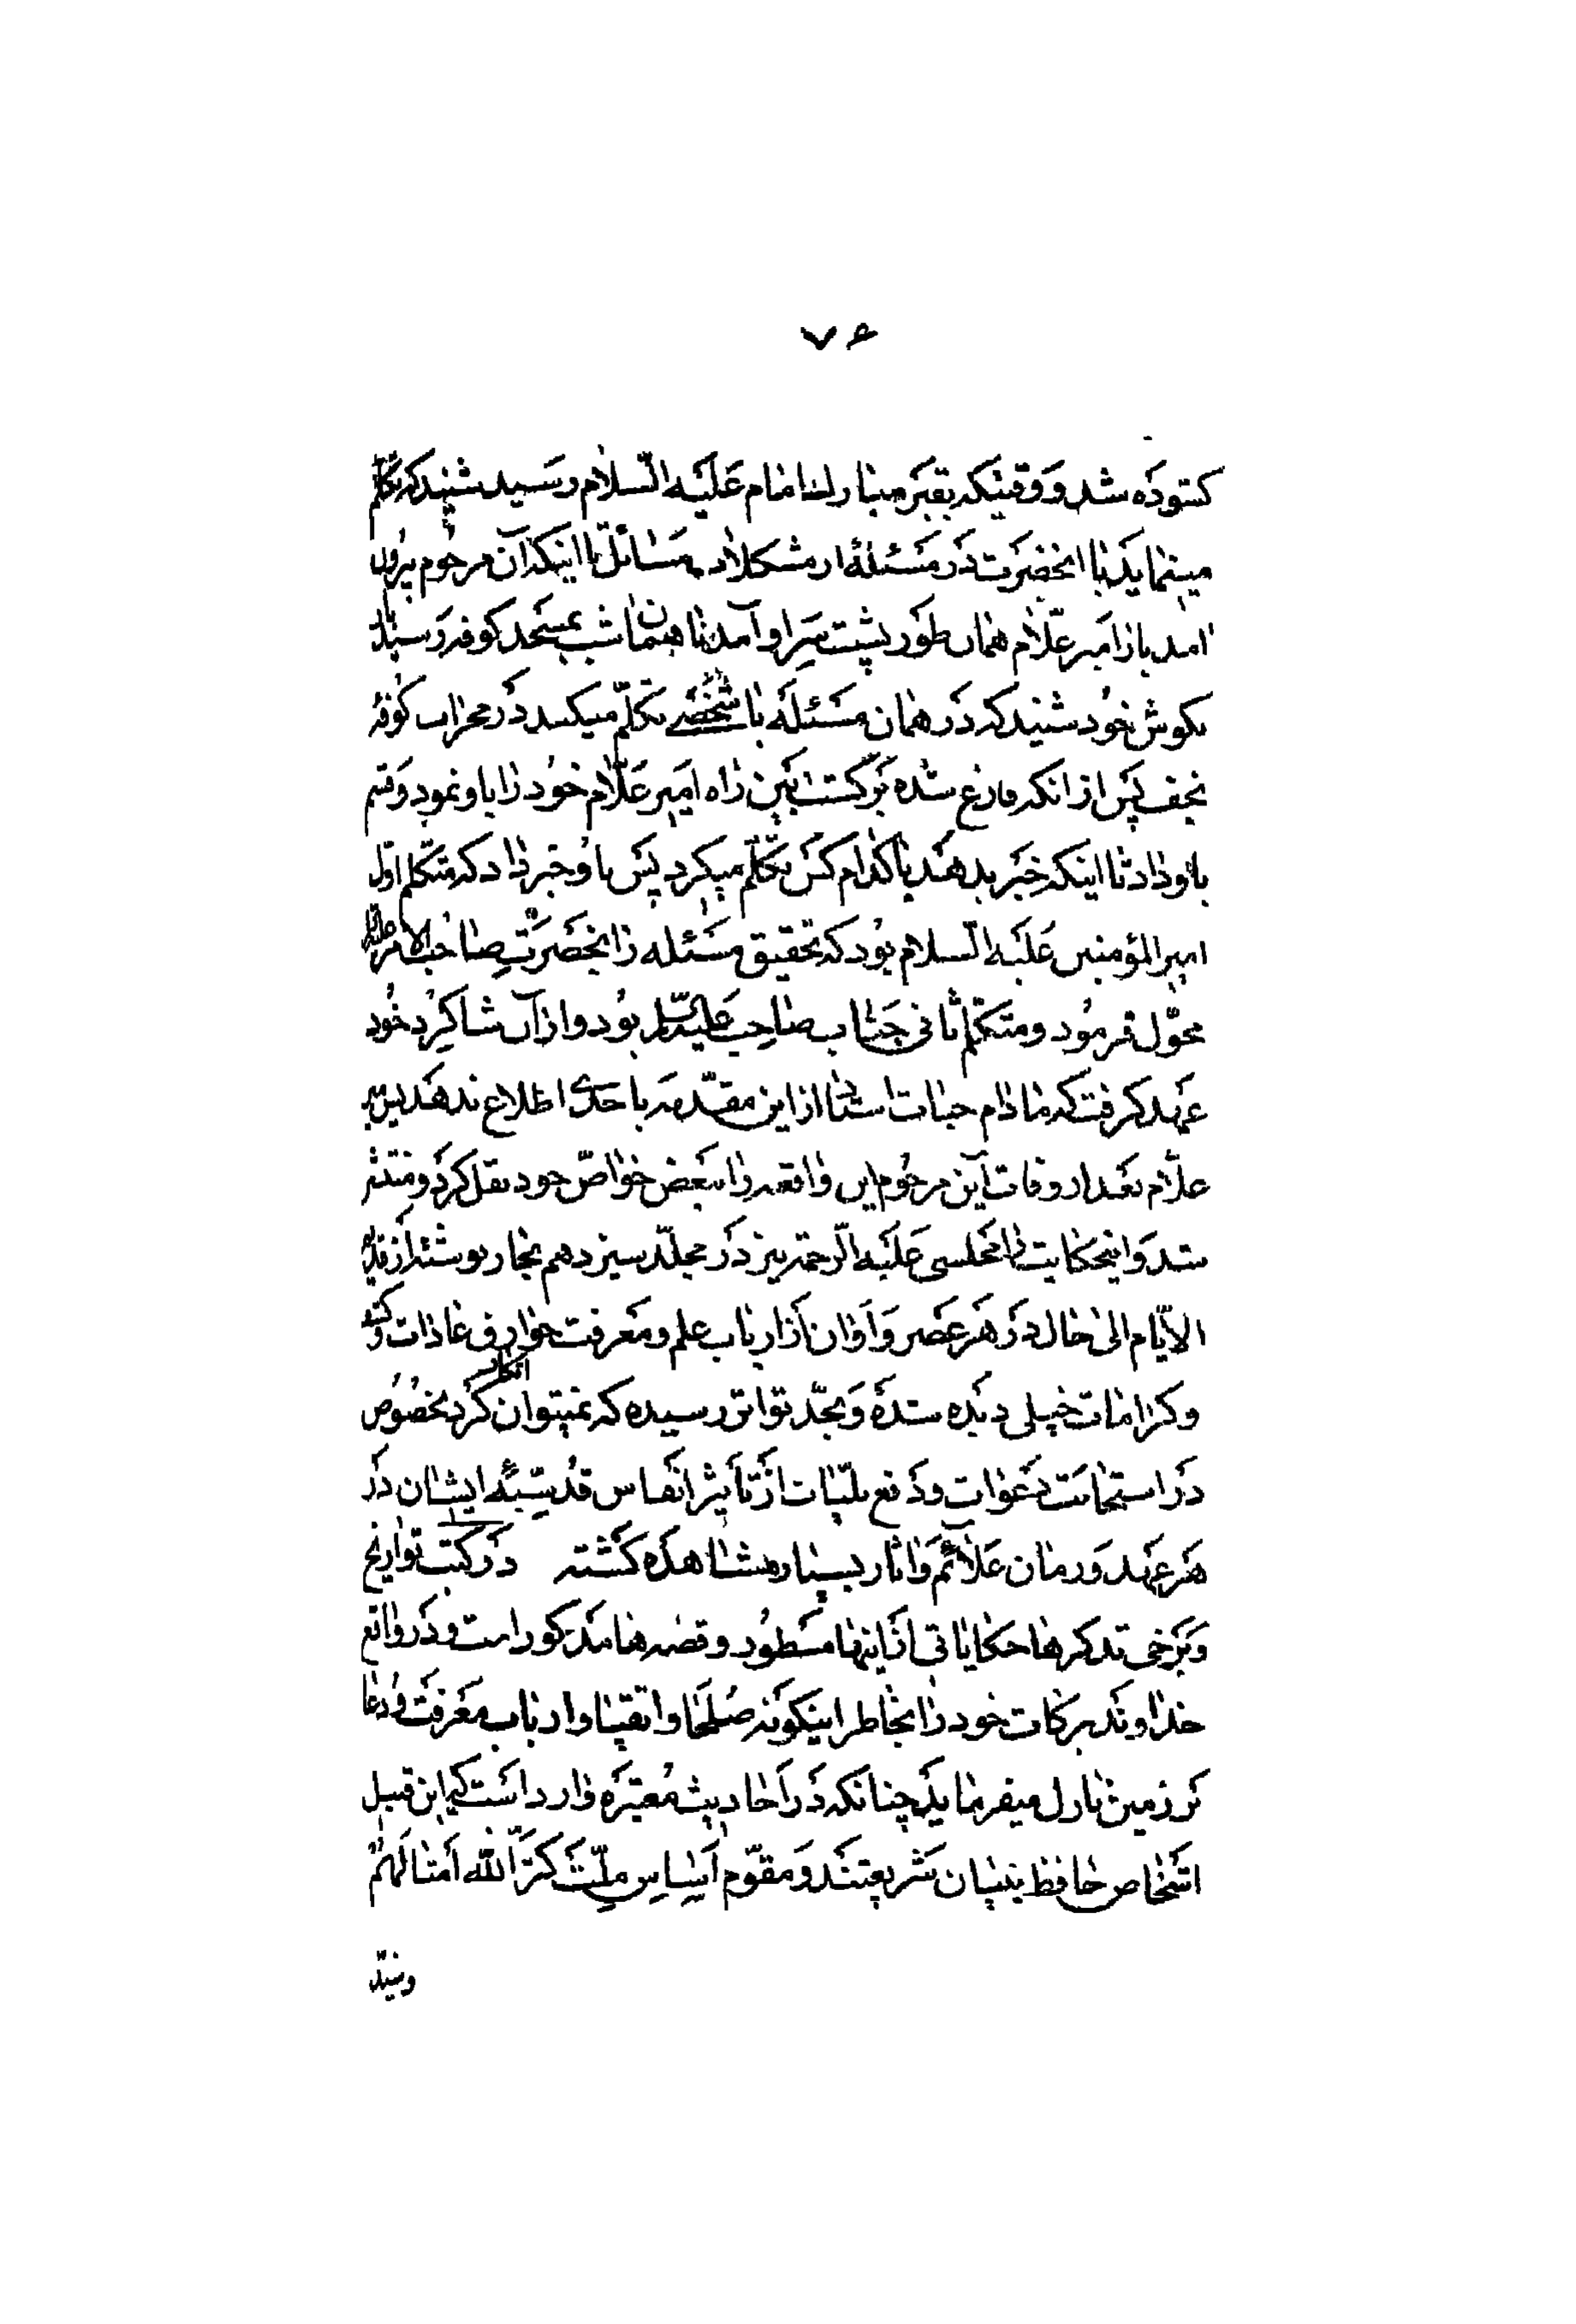 ۷۶
کشوده شد و وقتیکه بقبر مبارك امام علیه السلام رسید شنید که تکلم
مینماید با انحضرت در مسئلهٔ از مشکلات مسائل تا اینکه آن مرحوم بیرون
امد باز امیر علّام همان طور پشت سر او آمد تا همان شب بمسجد کوفه رسید تا
بکوش خود شنید که در همان مسئله با شخصی تکلّم میکند در محراب کوفه
نجف پس از انکه فارغ شده برکشت بین راه امیر علّام خود را باو نمود وقسم
باو داد تا اینکه خبر بدهند با کدام کس تکلّم میکرد پس باو خبر داد که متکلم اوّل
امیر المؤمنین علیه السلام بود که تحقیق مسئله را بحضرت صاحب الامر علیه السلام
محوّل فرمود ومتکلّم ثانی جناب صاحب علیه السلام بود واز آن شاکرد خود
عهد کرفت که مادام حیات استاد از این مقدّمه باحدی اطلاع ندهد پس میر
علّام بعد از وفات این مرحوم این واقعه را ببعض خواصّ خود نقل کرد ومنتشر
شد وانیحکایت را مجلسی علیه الرحمة نیز در مجلّد سیزدهم بحار نوشته از قدیم
الایّام الی حال در هر عصر و اوان از ارباب علم ومعرفت خوارق عادات و کشف
وکرامات خیلی دیده شده وبحدّ تواتر رسیده که نمیتوان انکار کرد بخصوص
در استجابت دعوات ودفع بلیّات از تأثیر انفاس قدسیّهٔ ایشان در
هر عهد وزمان علائم واثار بسیار مشاهده کشته در کتب تواریخ
وبرخی تذکرها حکایاتی از اینها مسطور وقصه ها مذکور است ودر واقع
خداوند برکات خود را بخاطر اینکونه صلحا واتقیا وارباب معرفت ودعا
بر زمین نازل میفرماید چنانکه در احادیث معتبره وارد است که این قبیل
اشخاص حافظ بنیان شریعتند ومقوّم اساس ملّت کثّر الله أمثالهم
وسیّد